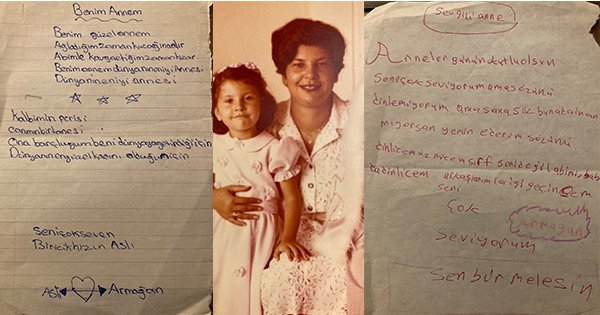 Benim Annem
Benim güzel annem
Ağladığım zaman kucağındadır
Abimle kavga ettiğim zaman kızar
Benim annem dünyanın en iyi Annesi
Dünyanın en iyi annesi
Kalbimin perisi
canımın birtanesi
Ona borçluyum beni dünyaya getirdiği için
Dünyanın en güzel kadını olduğun için
Seni çok seven
Biricik kızın Aslı
Aslı Armağan
Sevgili anne
Anneler günün kutlu olsun
Seni çok seviyorum ama sözünü
dinlemiyorum ama sana söz buna da inan
mıyorsan yemin ederim sözünü
dinlicem üzmücem sırf seni değil abimi, bab
dinlicem arkaşlarımla iyi geçincem
seni
Çok
armağan
seviyorum
Sen bür melesin